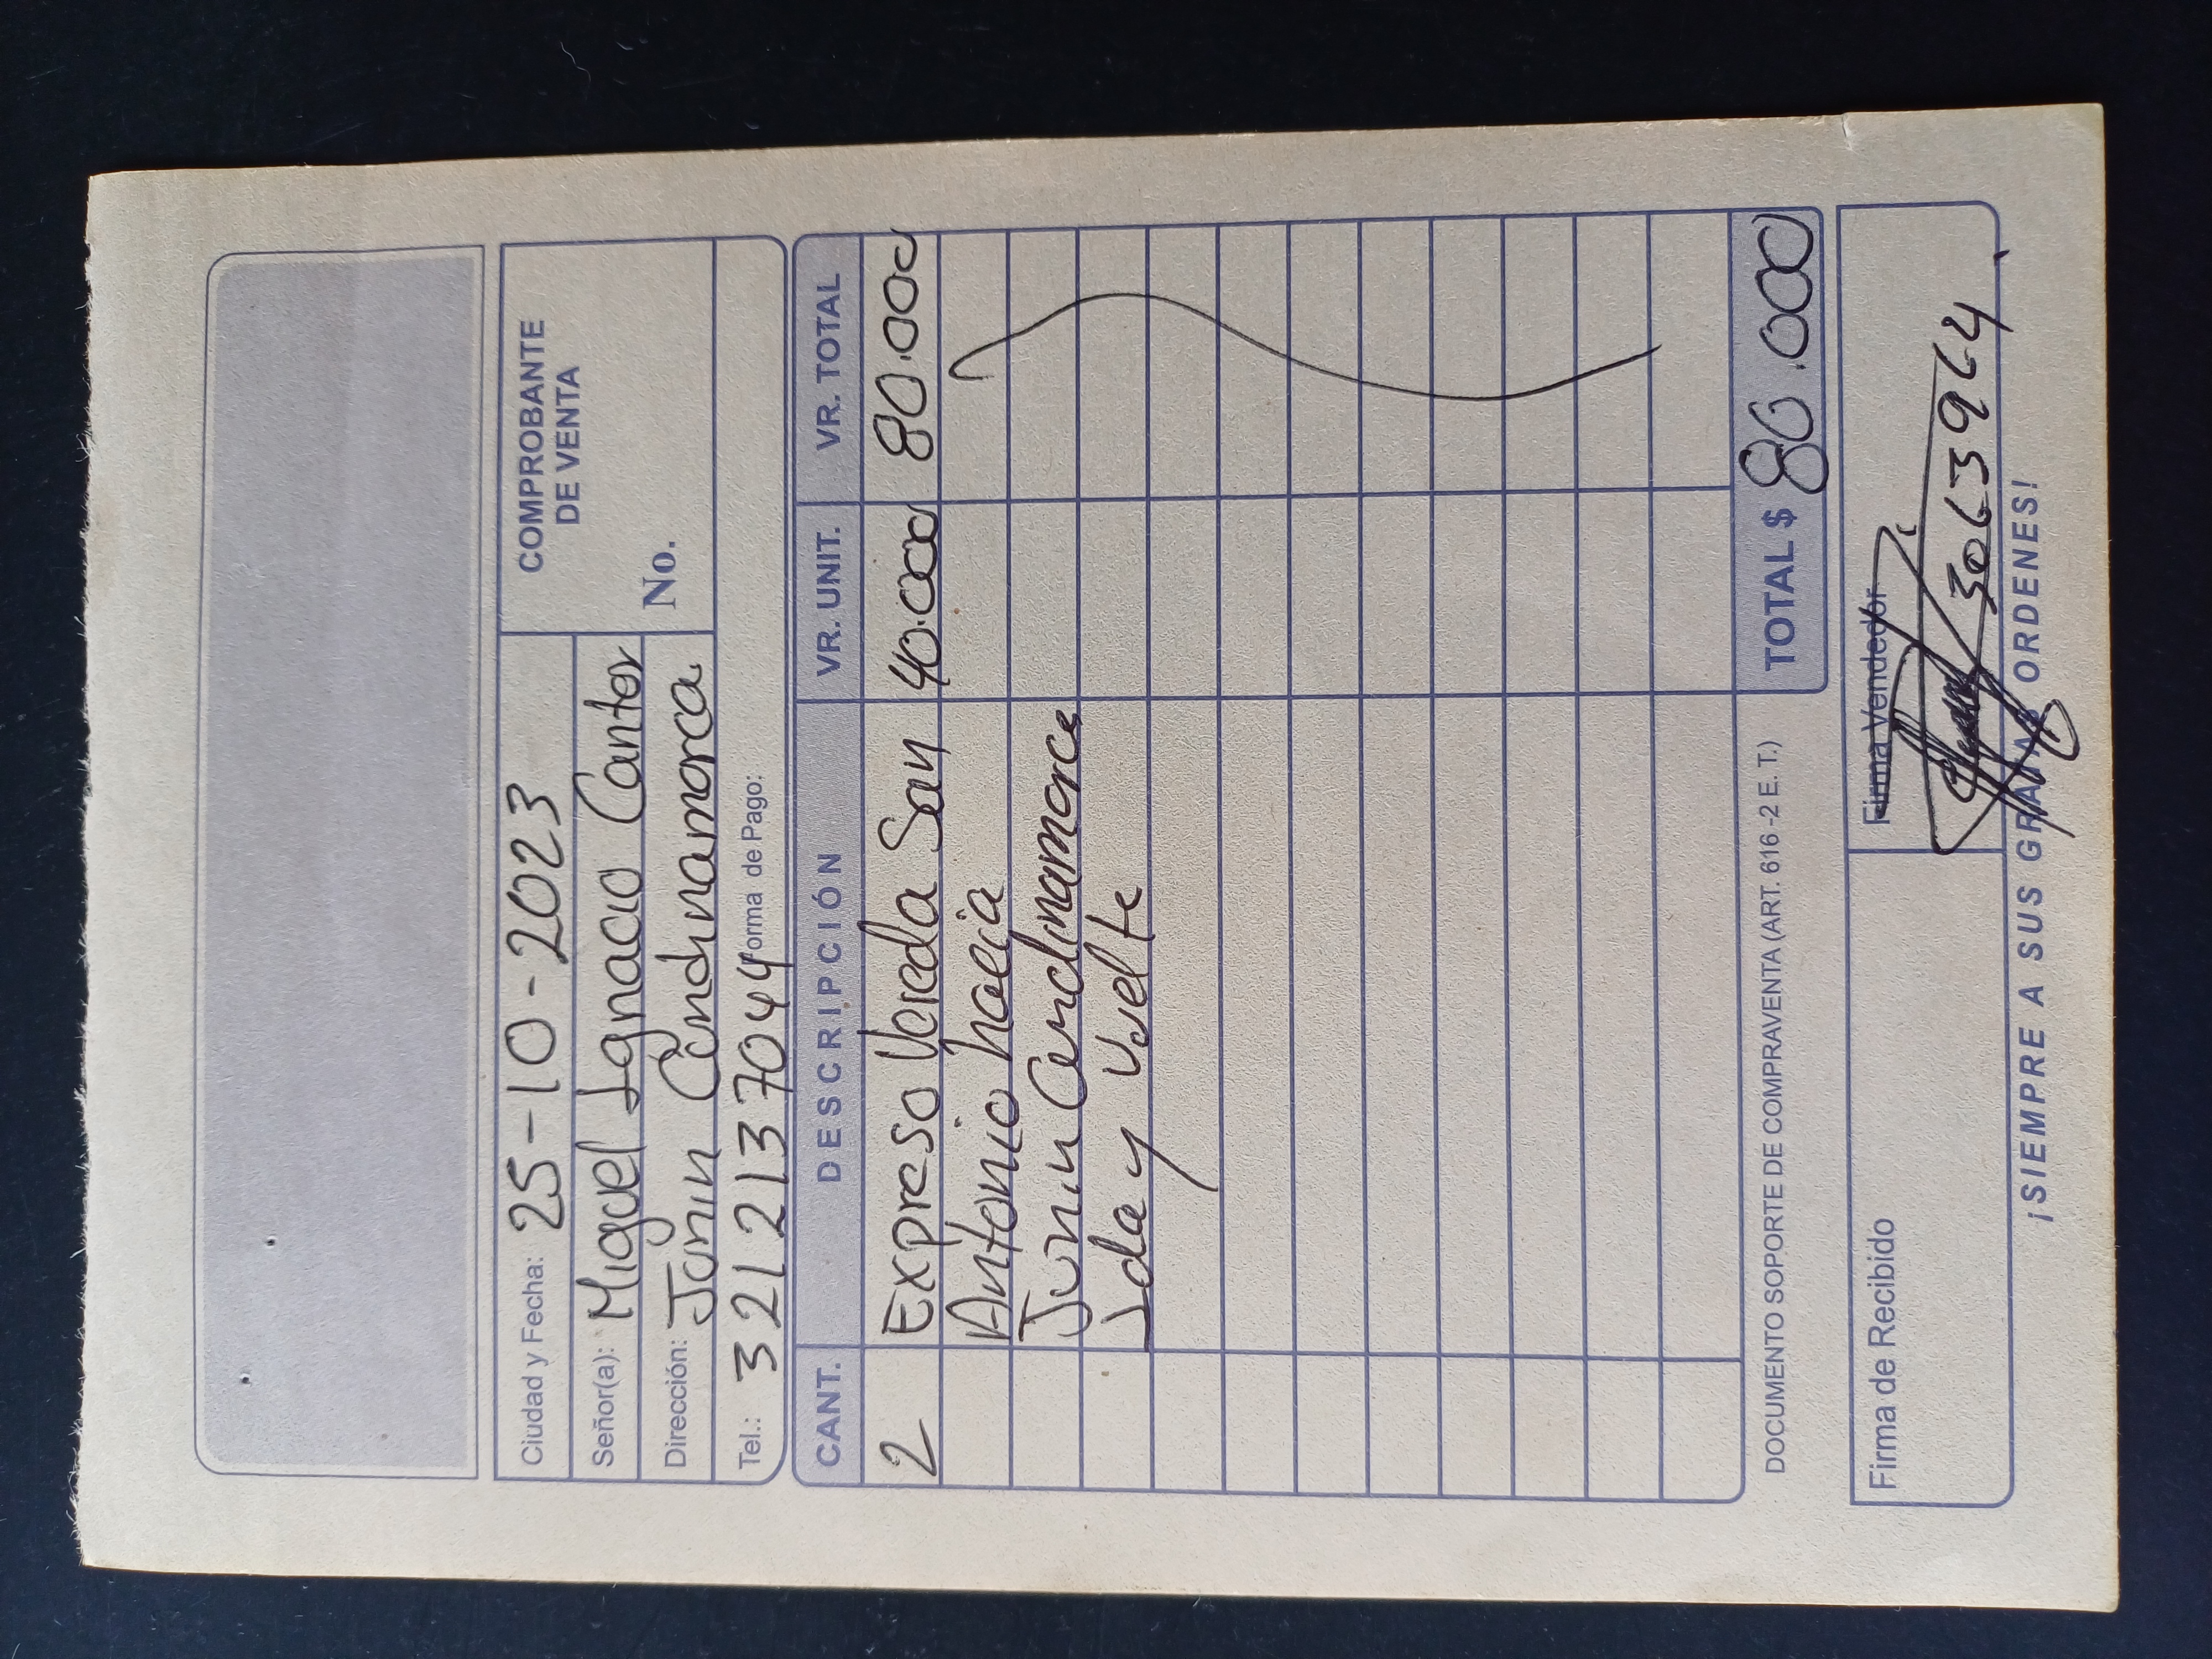 COMPROBANTE
DE VENTA
No.
Ciudad y Fecha: 25-10-2023
Señor(a): Miguel Ignacio Cantor
Dirección: Junin Cundinamarca
Tel.: 321 213 7044 Forma de Pago:
CANT. DESCRIPCIÓN VR. UNIT. VR. TOTAL
2 Expreso Vereda San 40.000 80.000
Antonio hacia
Junin Cundinamarca
Ida y Vuelta
DOCUMENTO SOPORTE DE COMPRAVENTA (ART. 616 -2 E. T.) TOTAL $ 80.000
Firma de Recibido Firma Vendedor
3063964
¡SIEMPRE A SUS GRATAS ORDENES!